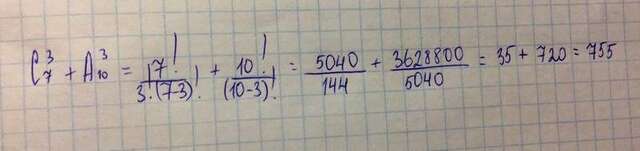 C₇³ + A₁₀³ = 7!/3!(7-3)! + 10!/(10-3)! = 5040/144 + 3628800/5040 = 35 + 720 = 755